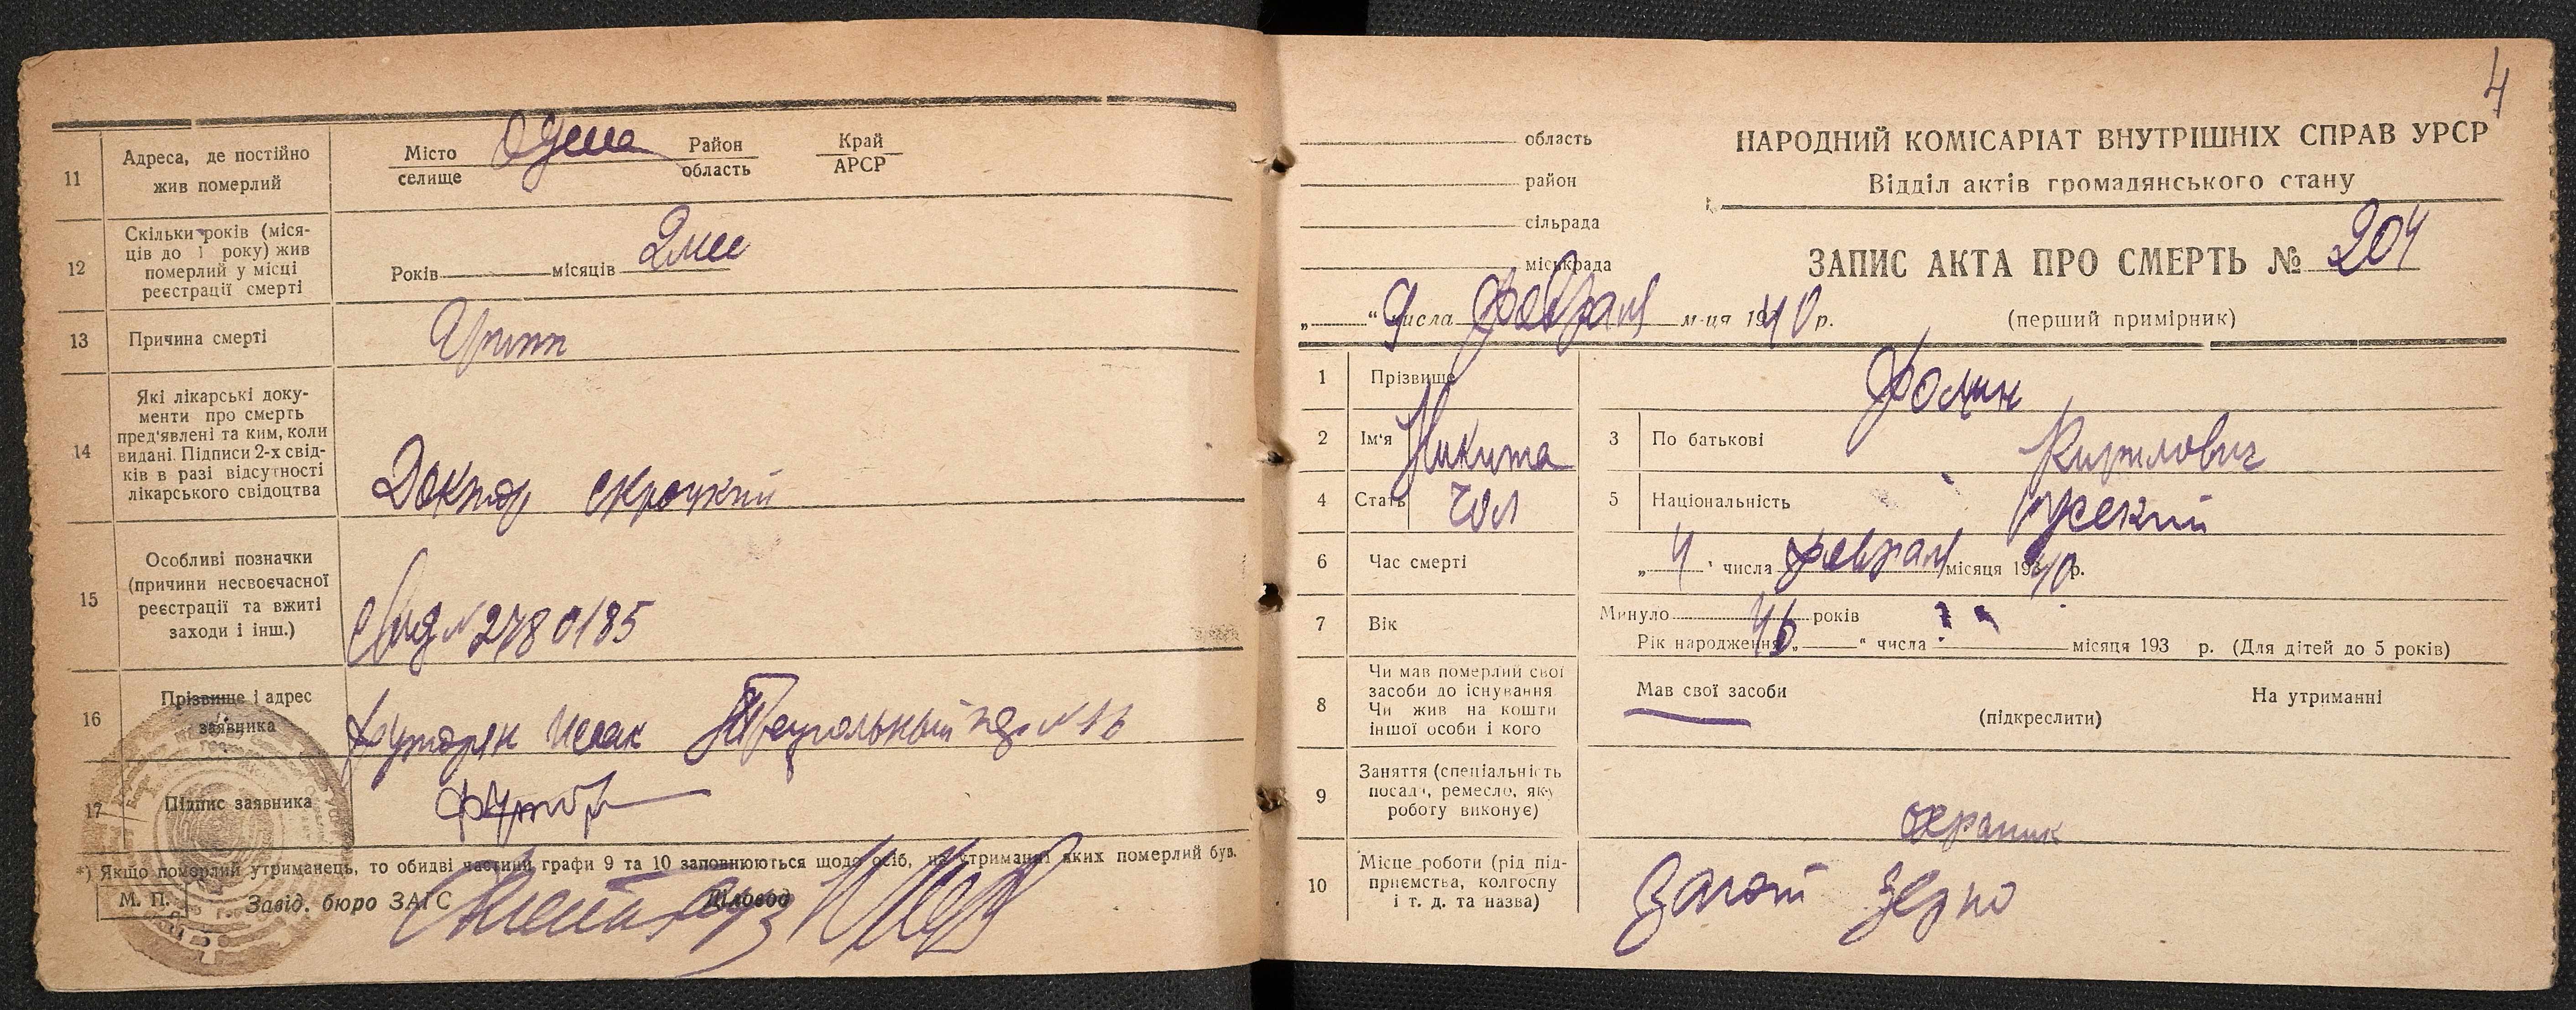 11
Адреса, де постійно
жив померлий
Місто
селище
Одесса
Район
область
Край
АРСР
12
Скільки років (міся-
ців до 1 року) жив
померлий у місці
реєстрації смерті
Років місяців 2 мес
13
Причина смерті
Грипп
14
Які лікарські доку-
менти про смерть
пред'явлені та ким, коли
видані. Підписи 2-х свід-
ків в разі відсутності
лікарського свідоцтва
Доктор Скроцкий
15
Особливі позначки
(причини несвоєчасної
реєстрації та вжиті
заходи і інш.)
2780185
16
Прізвище і адрес
заявника
Исаак Треугольный пер № 16
17
Підпис заявника
*) Якщо померлий утриманець, то обидві частини графи 9 та 10 заповнюються щодо осіб, на утриманні яких померлий був.
М. П.
Завід. бюро ЗАГС
Діловод
4
область
район
сільрада
міськрада
НАРОДНИЙ КОМІСАРІАТ ВНУТРІШНІХ СПРАВ УРСР
Відділ актів громадянського стану
ЗАПИС АКТА ПРО СМЕРТЬ № 204
(перший примірник)
„ “ 9 числа Февраля м-ця 1940 р.
1
Прізвище
Фомин
2
Ім'я
Никита
3
По батькові
Кирилович
4
Стать
Чол
5
Національність
русский
6
Час смерті
„ 4 “ числа февраля місяця 1940 р.
7
Вік
Минуло 46 років
Рік народження „ “ числа місяця 193 р. (Для дітей до 5 років)
8
Чи мав померлий свої
засоби до існування
Чи жив на кошти
іншої особи і кого
Мав свої засоби
(підкреслити)
На утриманні
9
Заняття (спеціальність
посада, ремесло, яку
роботу виконує)
охраник
10
Місце роботи (рід під-
приємства, колгоспу
і т. д. та назва)
Загот Зерно